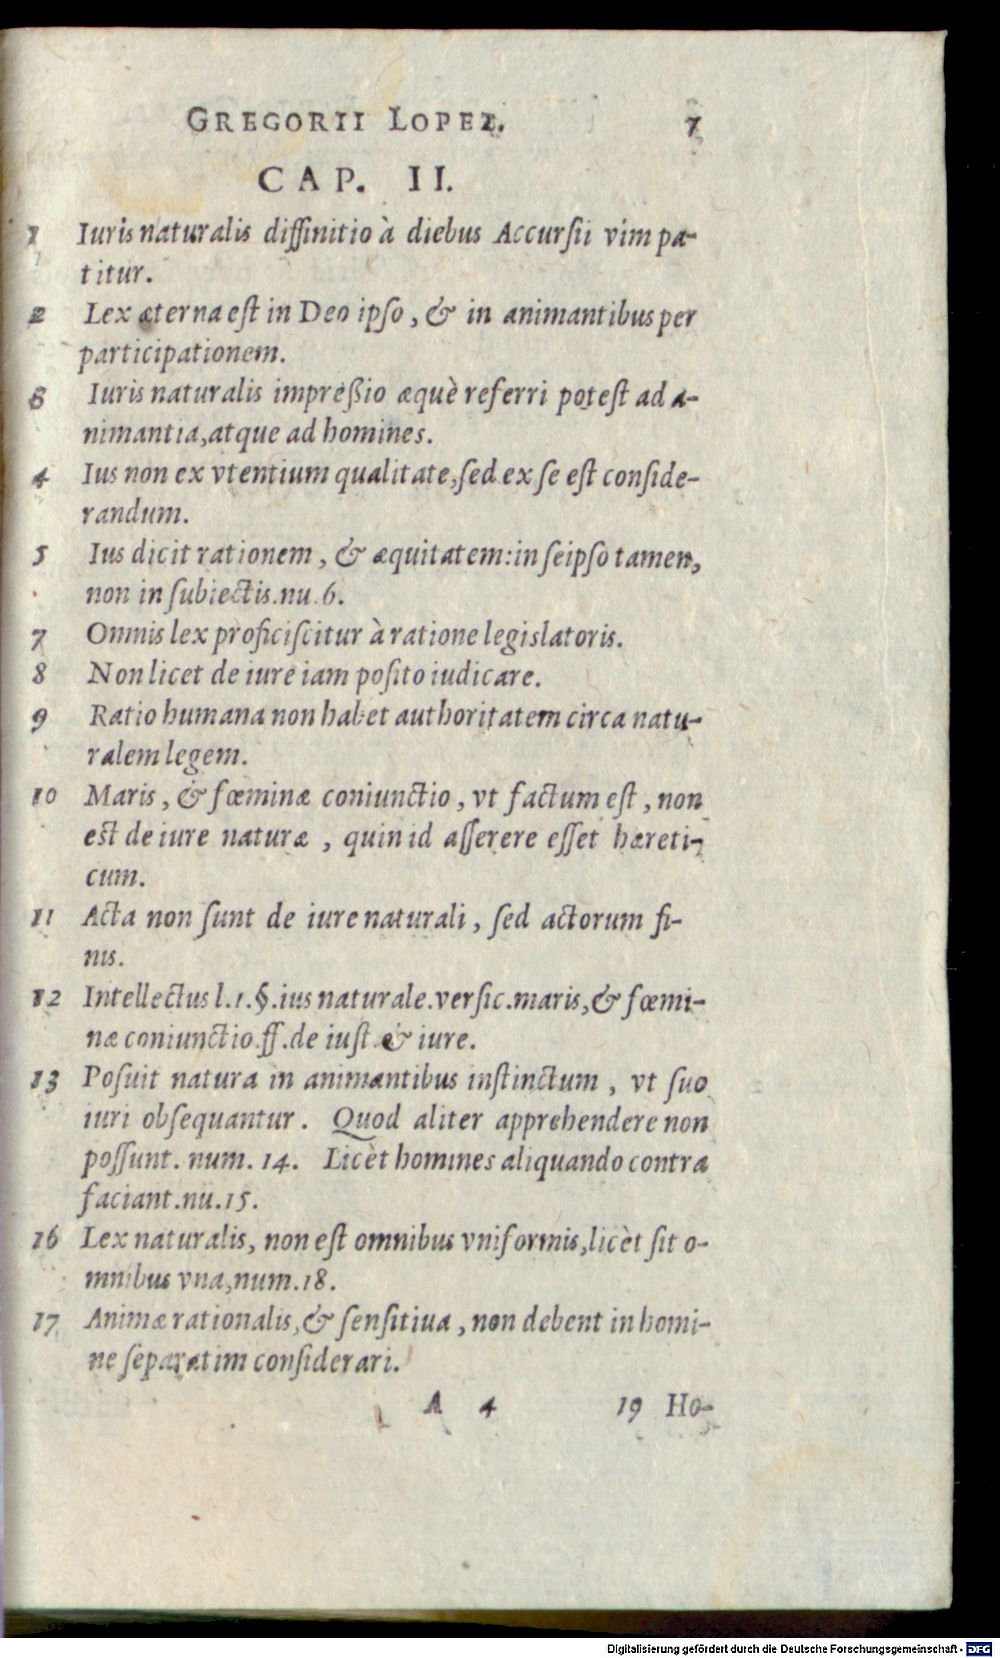 GREGORII LOPEZ. 7
CAP. II.
1 Iuris naturalis diffinitio à diebus Accurſii vim pa-
titur.
2 Lex æterna eſt in Deo ipſo, & in animantibus per
participationem.
3 Iuris naturalis impreßio æquè referri poteſt ad a-
nimantia, atque ad homines.
4 Ius non ex vtentium qualitate, ſed ex ſe eſt conſide-
randum.
5 Ius dicit rationem, & æquitatem: in ſeipſo tamen,
non in ſubiectis. nu. 6.
7 Omnis lex proficiſcitur à ratione legislatoris.
8 Non licet de iure iam poſito iudicare.
9 Ratio humana non habet authoritatem circa natu-
ralem legem.
10 Maris, & fœminæ coniunctio, vt factum eſt, non
eſt de iure naturæ, quin id aſſerere eſſet hæreti-
cum.
11 Acta non ſunt de iure naturali, ſed actorum fi-
nis.
12 Intellectus l. 1. §. ius naturale. verſic. maris, & fœmi-
næ coniunctio. ff. de iuſt. & iure.
13 Poſuit natura in animantibus inſtinctum, vt ſuo
iuri obſequantur. Quod aliter apprehendere non
poſſunt. num. 14. Licèt homines aliquando contra
faciant. nu. 15.
16 Lex naturalis, non eſt omnibus vniformis, licèt ſit o-
mnibus vna, num. 18.
17 Animæ rationalis, & ſenſitiua, non debent in homi-
ne ſeparatim conſiderari.
A 4 19 Ho-
Digitalisierung gefördert durch die Deutsche Forschungsgemeinschaft - DFG